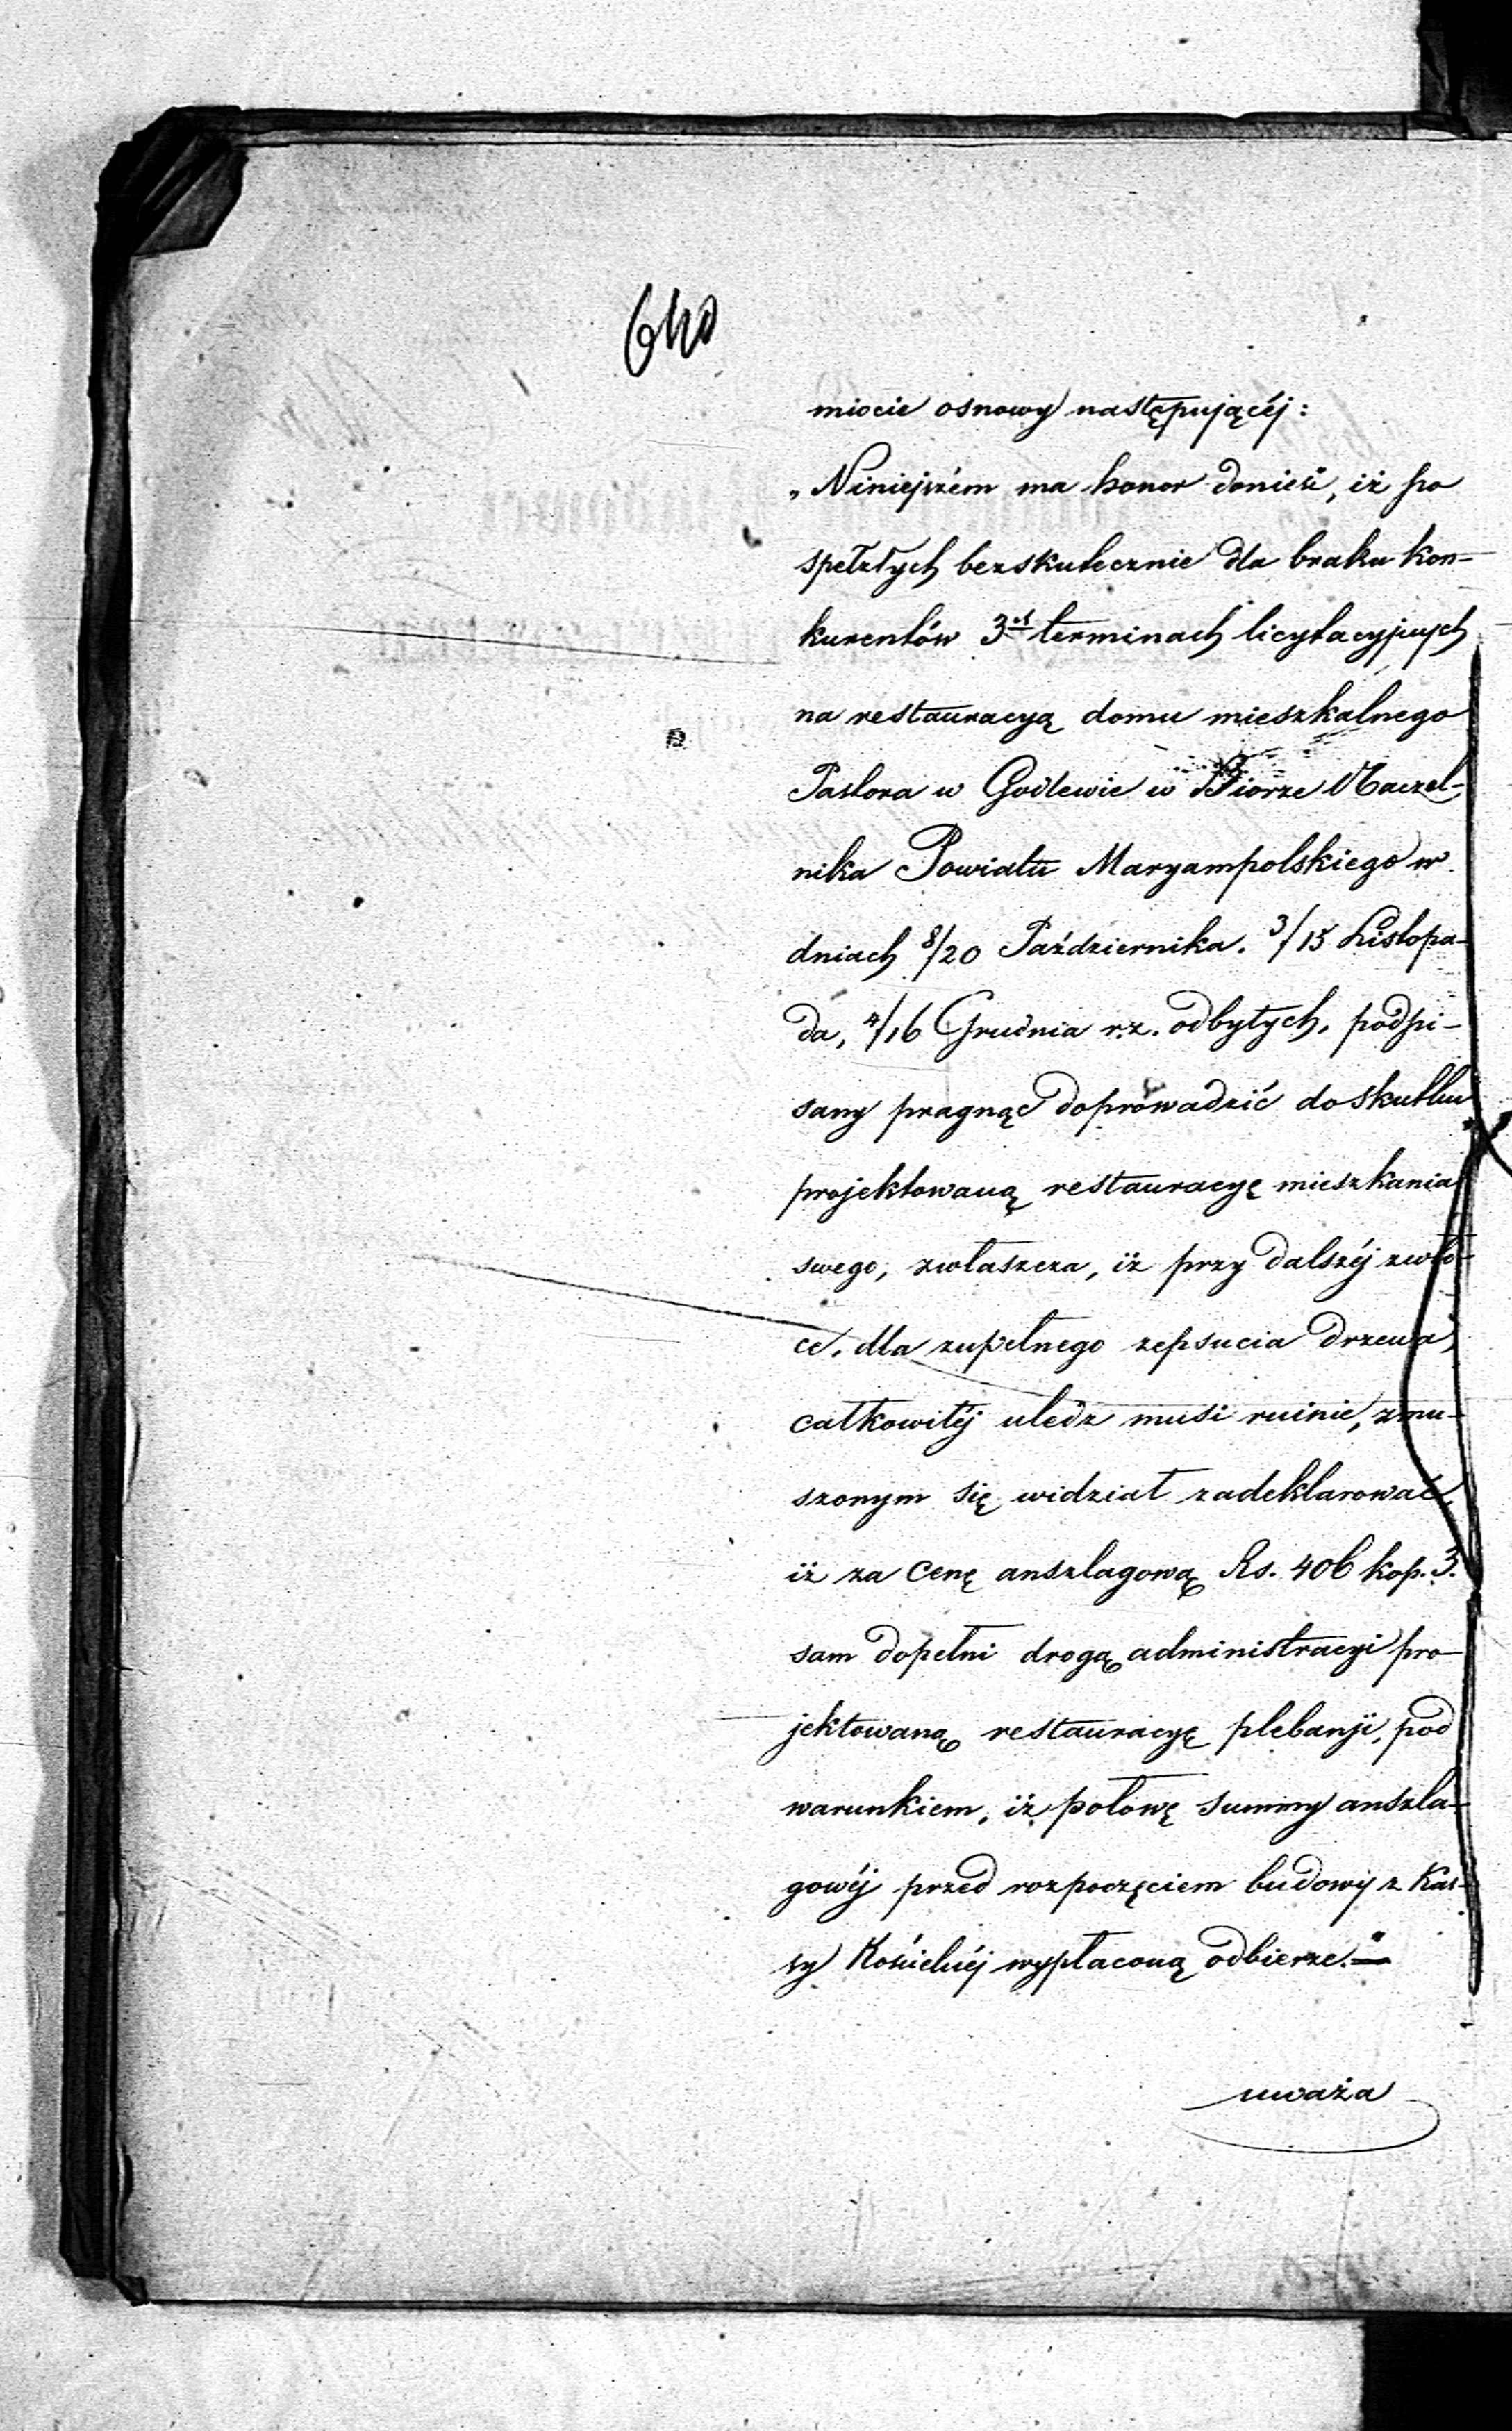 640
miocie osnowy następującéj:
„Niniejszém ma honor donieść, iż po
spełzłych bezskutecznie dla braku kon-
kurentów 3ch terminach licytacyjnych
na restauracyą domu mieszkalnego
Pastora w Godlewie w Biórze Naczel-
nika Powiatu Maryampolskiego w
dniach 8/20 Października. 3/15 Listopa-
da, 4/16 Grudnia r.z. odbytych, podpi-
sany pragnąc doprowadzić do skutku
projektowaną restauracyę mieszkania
swego, zwłaszcza, iż przy dalszéj zwło-
ce, dla zupełnego zepsucia drzewa,
całkowitéj uledz musi ruinie, zmu-
szonym się widział zadeklarować,
iż za cenę anszlagową Rs. 406 kop. 3.
sam dopełni drogą administracyi pro-
jektowaną restauracyę plebanji, pod
warunkiem, iż połowę summy anszla-
gowéj przed rozpoczęciem budowy z Kas-
sy Kościelnéj wypłaconą odbierze."
uważa